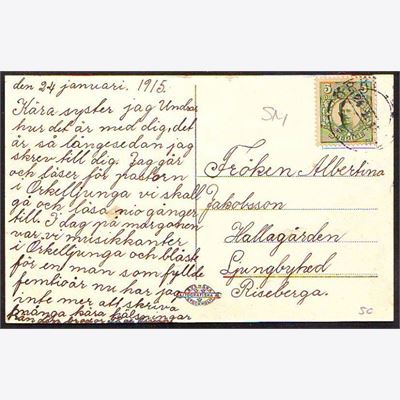 den 24 januari. 1915.
Kära syster jag Undrar
hur det är med dig, det
är så längesedan jag
skrev till dig. Jag går
och läser för pastorn
i Örkelljunga vi skall
gå och läsa nio gånger
till. I dag på morgonen
var vi musikkanter
i Örkelljunga och blåste
för en man som fyllde
femtio år nu har jag
inte mer att skriva
många kära hälsningar
från din broder
SM
5 5
Fröken Albertina
Jakobsson
Hallagården
Ljungbyhed
Riseberga.
SC